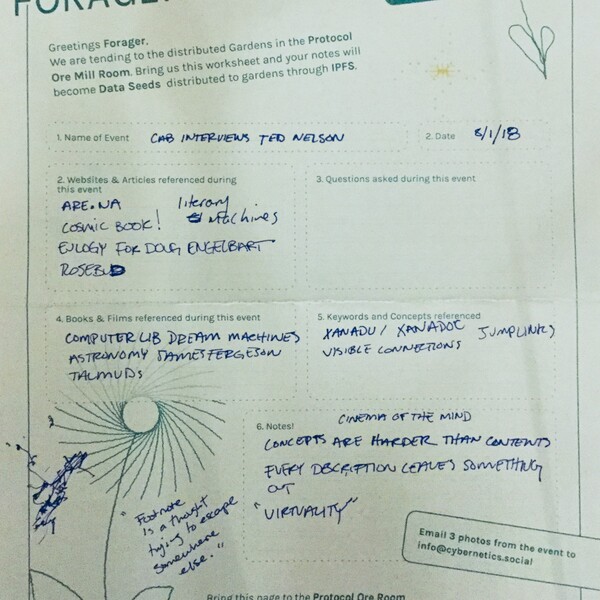 FORAGER
Greetings Forager,
We are tending to the distributed Gardens in the Protocol
Ore Mill Room. Bring us this worksheet and your notes will
become Data Seeds distributed to gardens through IPFS.
1. Name of Event CAB INTERVIEWS TED NELSON
2. Date 8/1/18
2. Websites & Articles referenced during
this event
ARE.NA
literary
Machines
COSMIC BOOK!
EULOGY FOR DOUG ENGELBART
ROSEBUD
3. Questions asked during this event
4. Books & Films referenced during this event
COMPUTER LIB DREAM MACHINES
ASTRONOMY JAMES FERGESON
TALMUDS
5. Keywords and Concepts referenced
XANADU / XANADOC JUMPLINKS
VISIBLE CONNECTIONS
6. Notes!
CINEMA OF THE MIND
CONCEPTS ARE HARDER THAN CONTENTS
EVERY DSCRIPTION LEAVES SOMETHING
OUT
"VIRTUALITY"
"Footnote
is a thought
trying to escape
somewhere
else."
Email 3 photos from the event to
info@cybernetics.social
Bring this page to the Protocol Ore Room